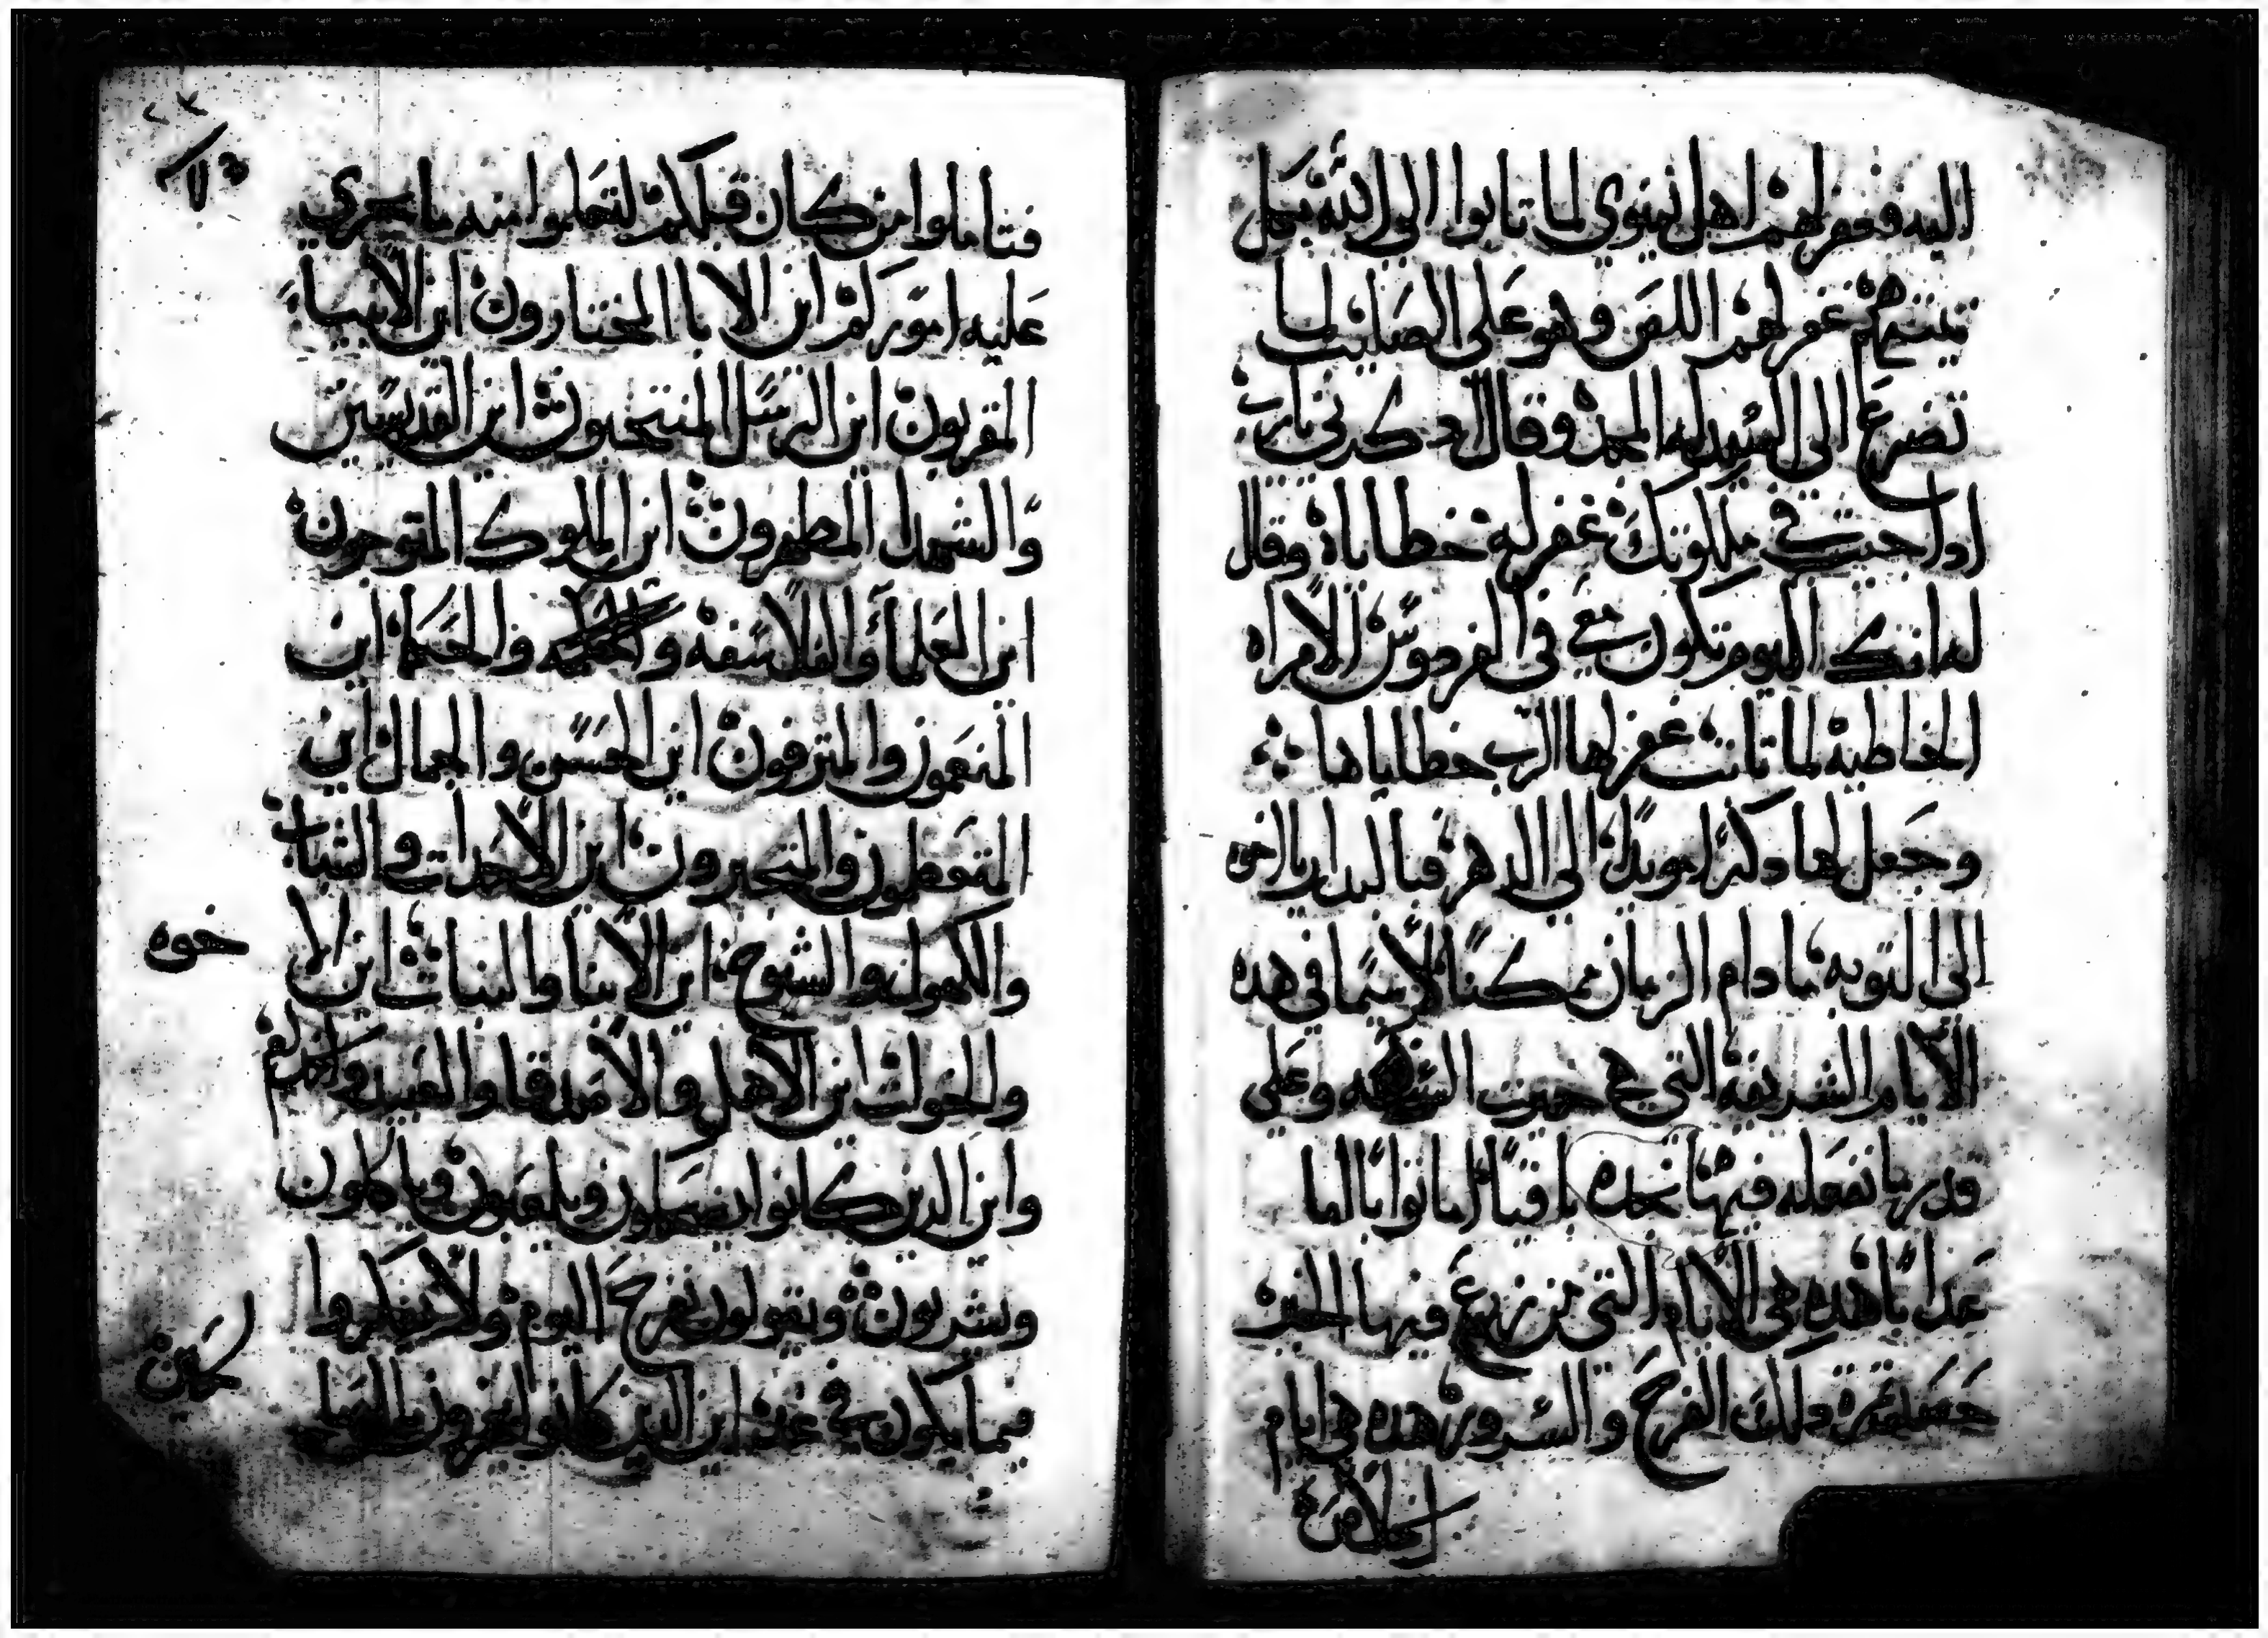 اليه فغفر لهم اهل نينوي لما تابوا الى الله بكل
نيتهم غفر لهم اللص وهو على الصليب لما
تضرع الى السيد له المجد وقال ادكرني يارب
ادا جيت في ملكوتك غفر له خطاياه وقال
له انك اليوم تكون معي في الفردوس الامراه
الخاطيه لما تابت غفر لها الرب خطاياها
وجعل لها دكرا موبدا الى الدهر فالبدار يا اخوه
الى التوبه ما دام الزمان ممكنا لاسيما في هده
الايام الشريفه التي هي خميرت السنه وعلى
قدر ما نفعله فيها نجده باقيا اما نوابا اما
عدابا هده هي الايام التي من زرع فيها الخير
حصد ثمرة دلك الفرح والسرور هده هي ايام
الخلاص
فتاملوا من كان قبلكم لتعلموا منه ما يجري
عليه اموركم اين الابا المختارون اين الانبياء
المقربون اين الرسل المنتخبون اين القديسين
والشهدا المطهرون اين الملوك المتوجون
اين العلما والفلاسفه والحكما اين
المنعمون والمترفون اين الحسن والجمال اين
المتعظمون والمتجبرون اين الاحداث والشباب
والكهوله والشيوخ اين الابنا والبنات اين الا
خوه
والخوات اين الاهل والاصدقا والعبيد والخدم
واين الدين كانوا يضحكون ويلعبون وياكلون
ويشربون ويقولون نفرح اليوم ولا يفكروا
فيما يكون في غد اين الدين كانوا يفخرون بالنسا